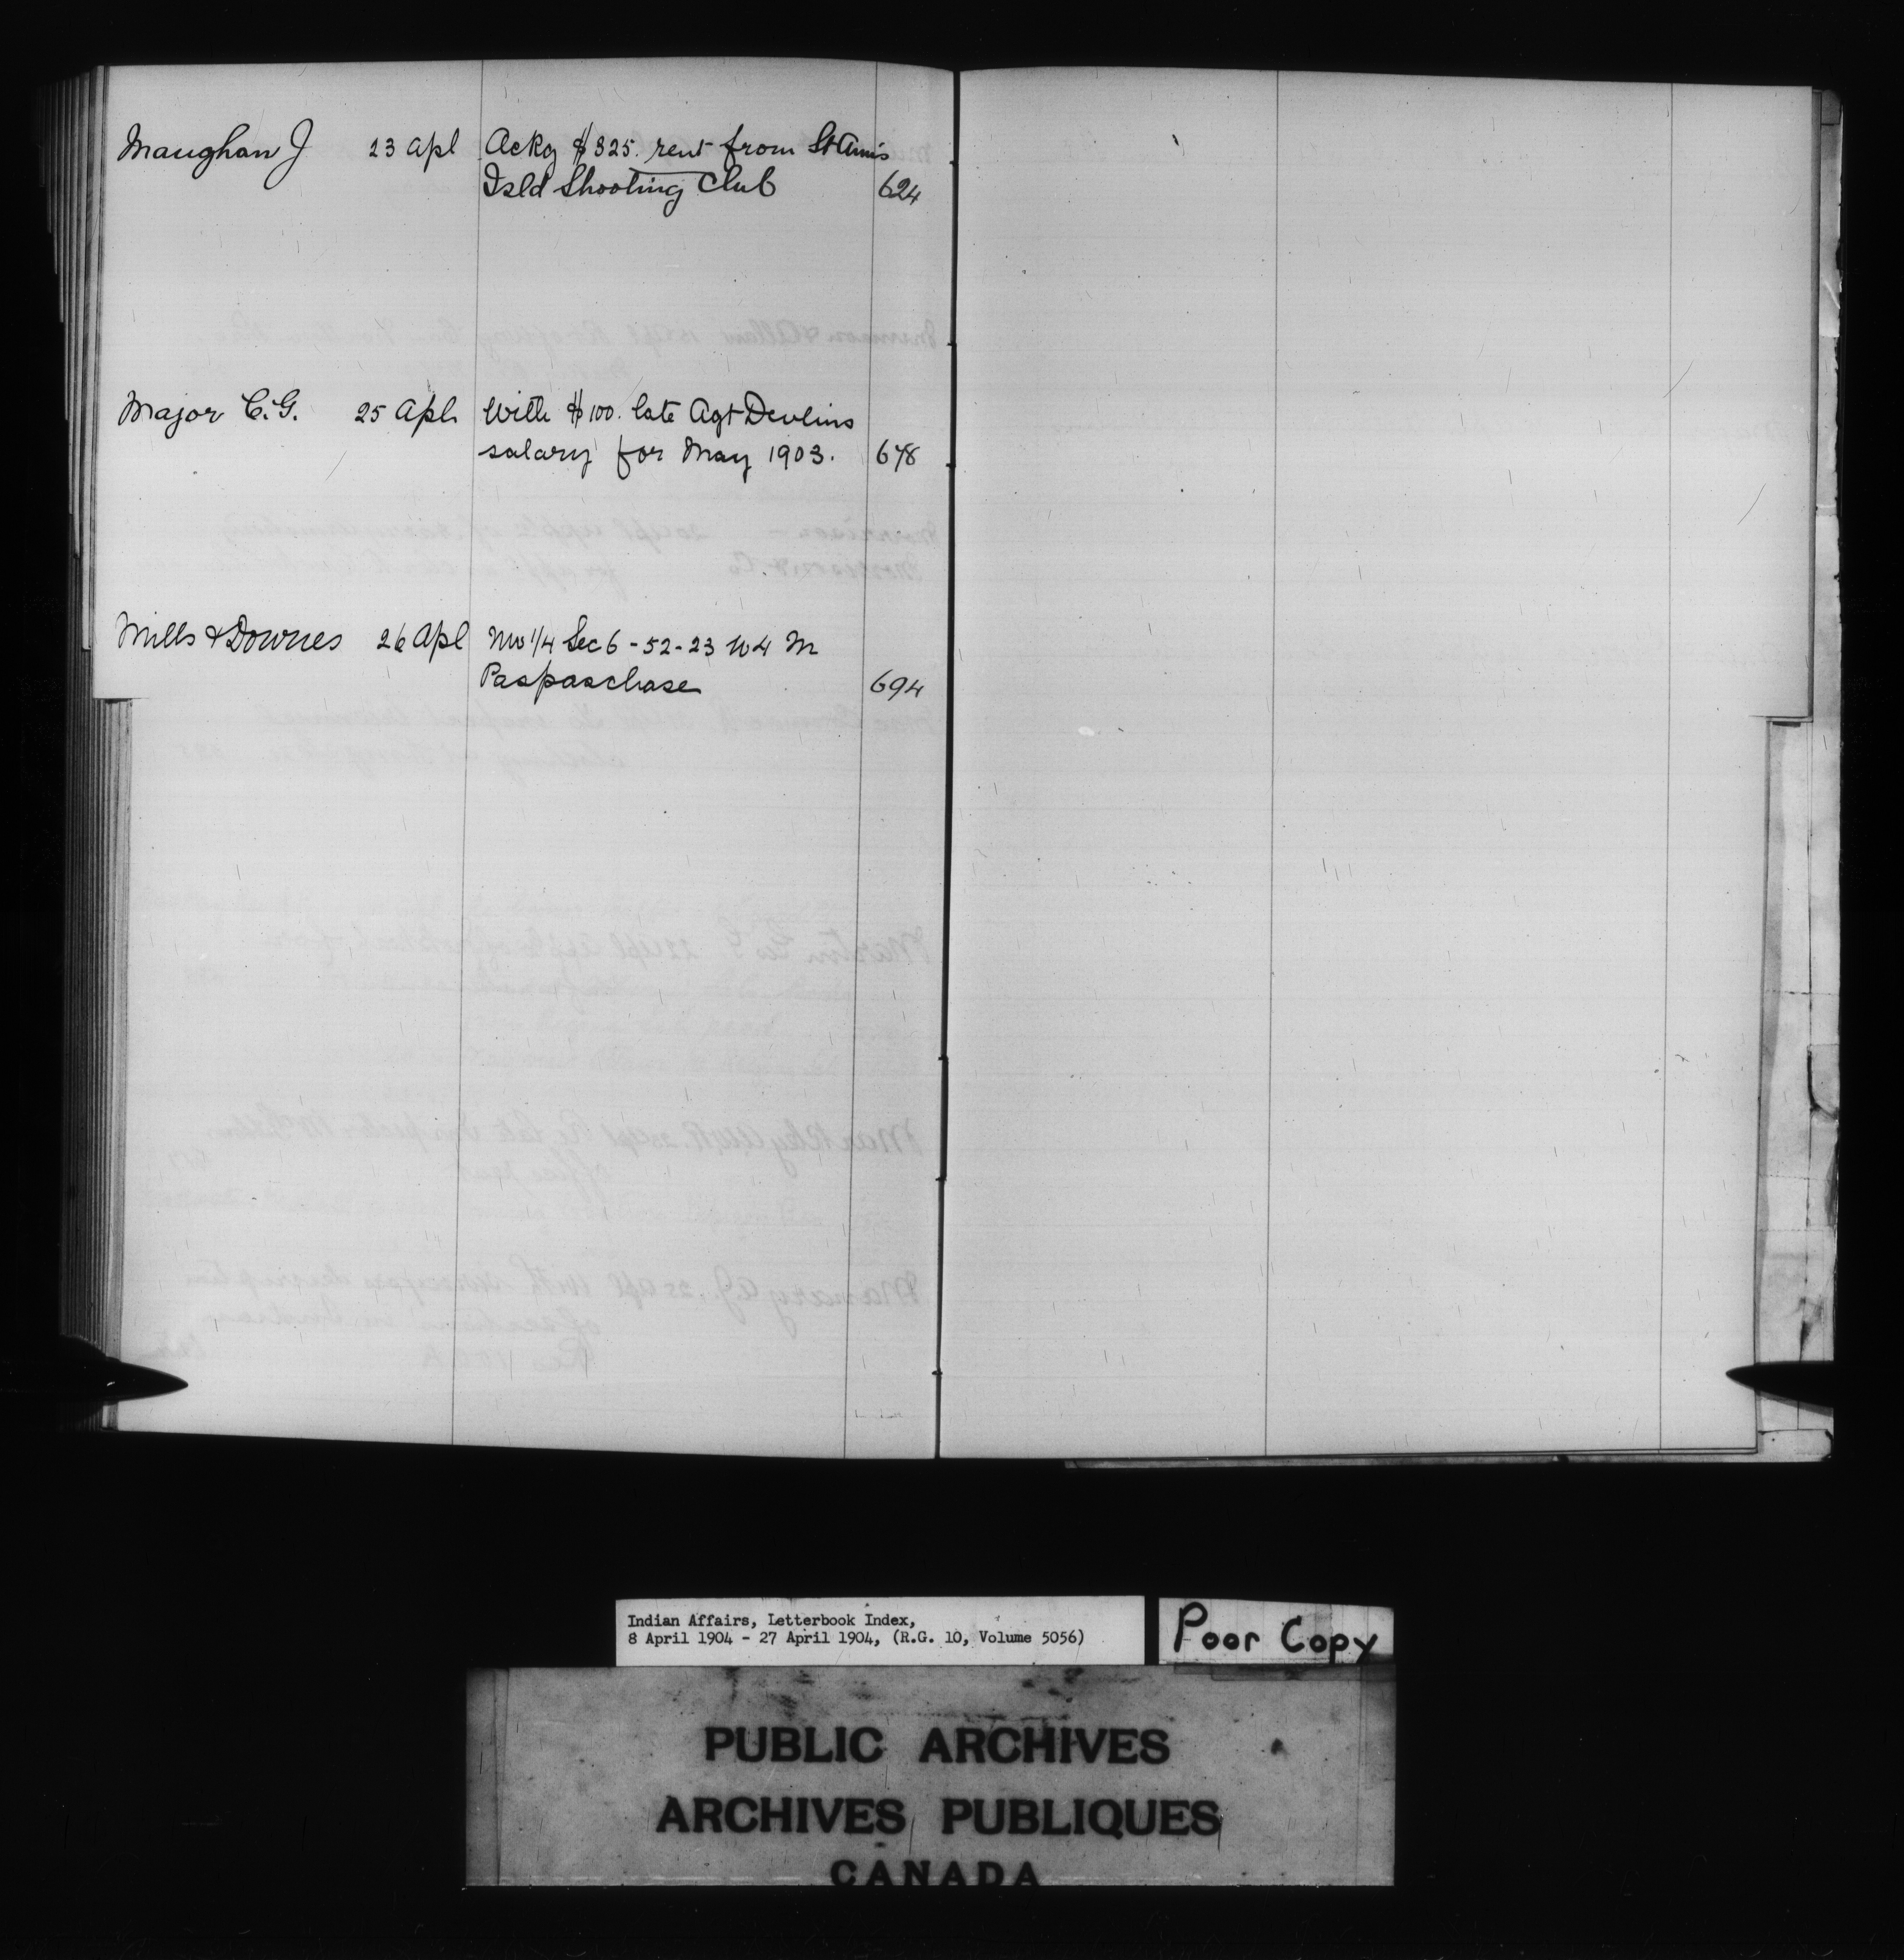 Maughan J 23 Apl Ackg $325. rent from St Anns
Isld Shooting Club 624
Major C.G. 25 Apl With $100. late Agt Devlins
salary for May 1903. 678
Mills & Downes 26 Apl NW 1/4 Sec 6 - 52 - 23 W 4 M
Paspaschase 694
Indian Affairs, Letterbook Index,
8 April 1904 - 27 April 1904, (R.G. 10, Volume 5056)
Poor Copy
PUBLIC ARCHIVES
ARCHIVES PUBLIQUES
CANADA